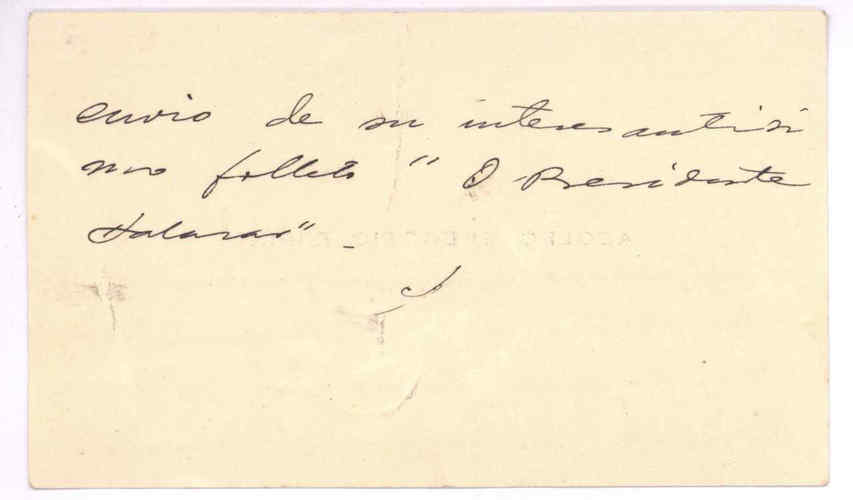 envio de su interesantisi
mo folleto " O Presidente
Salazar".